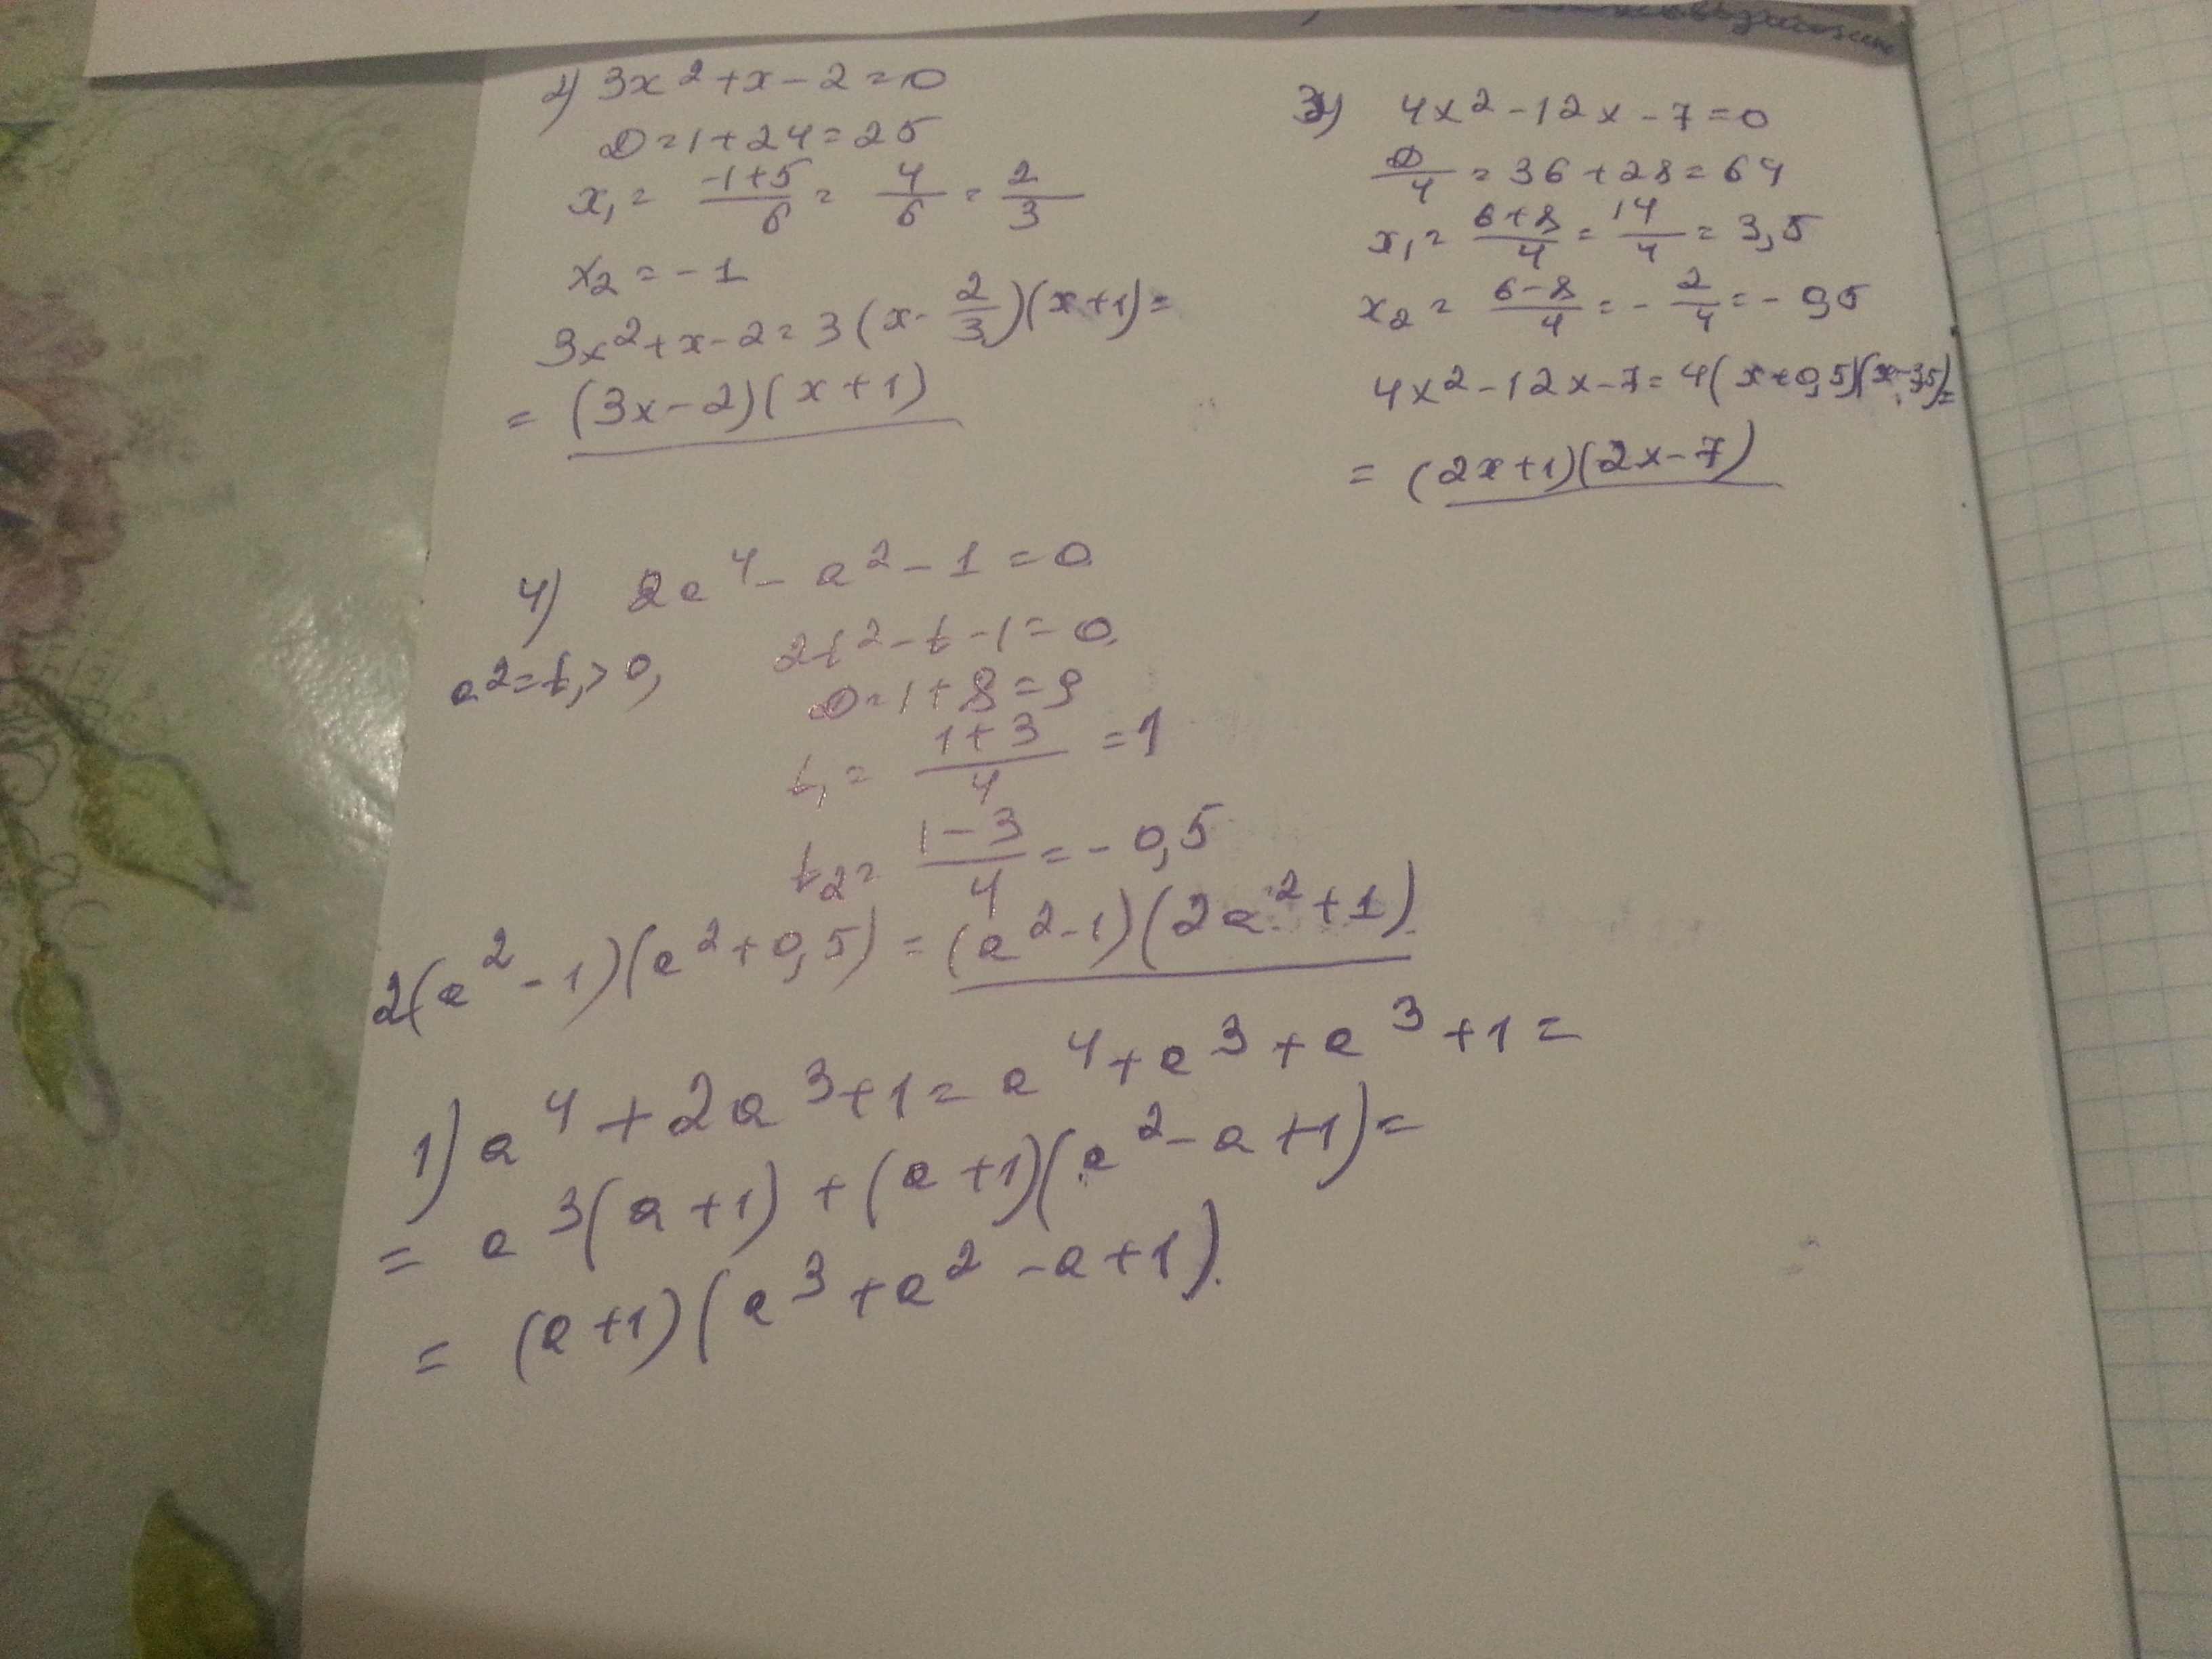 2) 3x²+x-2=0
D=1+24=25
x₁= (-1+5)/6 = 4/6 = 2/3
x₂=-1
3x²+x-2=3(x-2/3)(x+1)=
=(3x-2)(x+1)
3) 4x²-12x-7=0
D/4=36+28=64
x₁= (6+8)/4 = 14/4 = 3,5
x₂= (6-8)/4 = -2/4 = -0,5
4x²-12x-7=4(x+0,5)(x-3,5)=
=(2x+1)(2x-7)
4) 2a⁴-a²-1=0
a²=t,>0, 2t²-t-1=0.
D=1+8=9
t₁= (1+3)/4 =1
t₂= (1-3)/4 =-0,5
2(a²-1)(a²+0,5)=(a²-1)(2a²+1).
1) a⁴+2a³+1=a⁴+a³+a³+1=
=a³(a+1)+(a+1)(a²-a+1)=
=(a+1)(a³+a²-a+1).